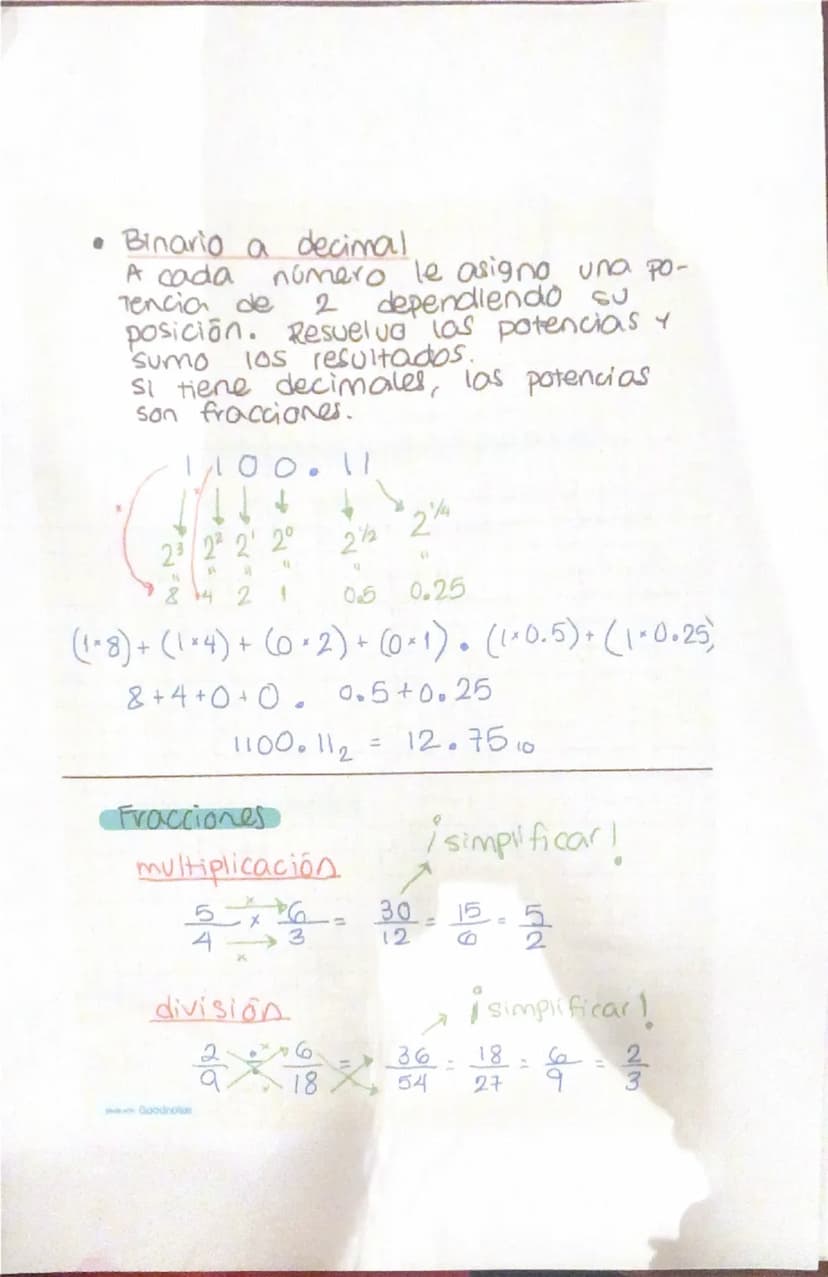 • Binario a decimal
A cada número le asigno una po-
tencia de 2 dependiendo su
posición. Resuelvo las potencias y
sumo los resultados.
Si tiene decimales, las potencias
son fracciones.
1 1 0 0 . 1 1
2³ 2² 2¹ 2⁰ 2^1/2 2^1/4
" " " " " "
8 4 2 1 0.5 0.25
(1×8) + (1×4) + (0×2) + (0×1) . (1×0.5) + (1×0.25)
8 + 4 + 0 + 0 . 0.5 + 0.25
1100.11₂ = 12.75₁₀
Fracciones
¡simplificar!
multiplicación
5/4 × 6/3 = 30/12 = 15/6 = 5/2
división
¡simplificar!
2/9 ÷ 6/18 = 36/54 = 18/27 = 6/9 = 2/3
Goodnotes